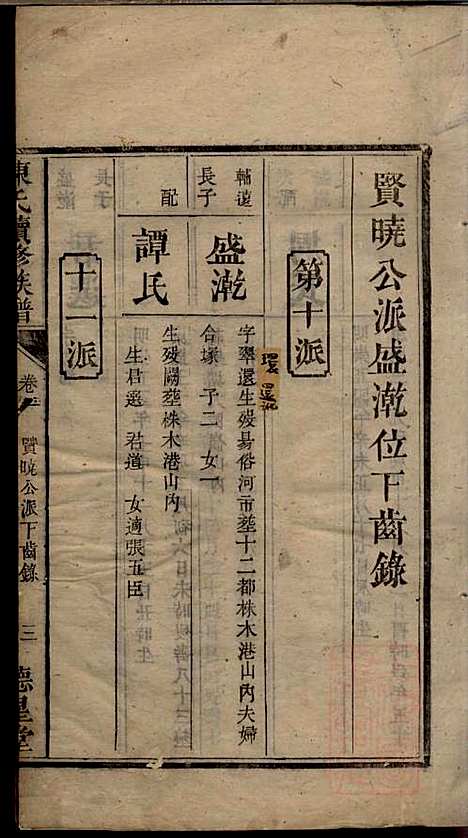 賢曉公派盛漧位下齒錄
第十派
輔德
長子
盛漧
字翠還生歿易俗河市塟十二都株木港山內夫婦
合塚 子二 女一
配
譚氏
生歿闕塟株木港山內
生君選 君道 女適張五臣
十一派
陳氏續修族譜
卷
賢曉公派下齒錄
三
德星堂